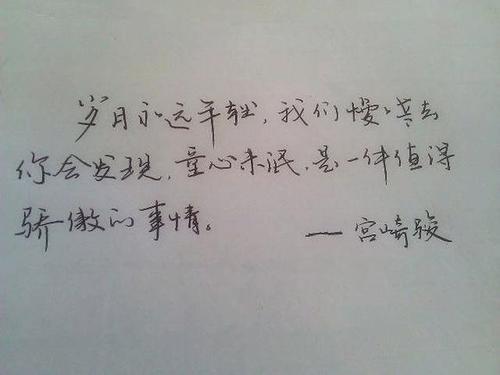 岁月永远年轻，我们慢慢老去
你会发现，童心未泯，是一件值得
骄傲的事情。 —宫崎骏